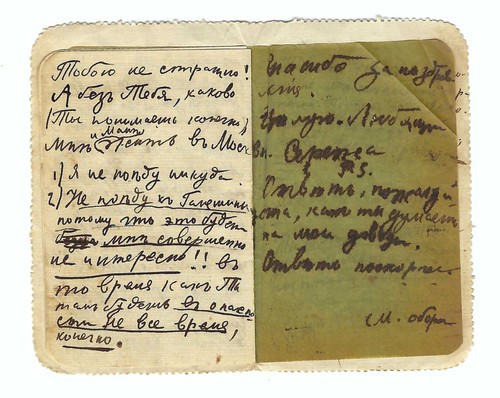 Тобою не страшно!
А безъ Тебя, каково
(Ты понимаешь конечно)
и Маит
мнѣ жить въ Мос
1) Я не поѣду никуда.
2) Не поѣду къ
потому что это будетъ
мнѣ совершенно
не интересно!! Въ
то время какъ Ты
тамъ будешь въ опасно
сти не все время,
конечно.
Спасибо за поздра
Цѣлую. Любящ
Сережа
P.S.
Отвѣть, пожалуй
ста, какъ ты думаешь
на мои доводы.
Отвѣть поскорѣе
см. обор